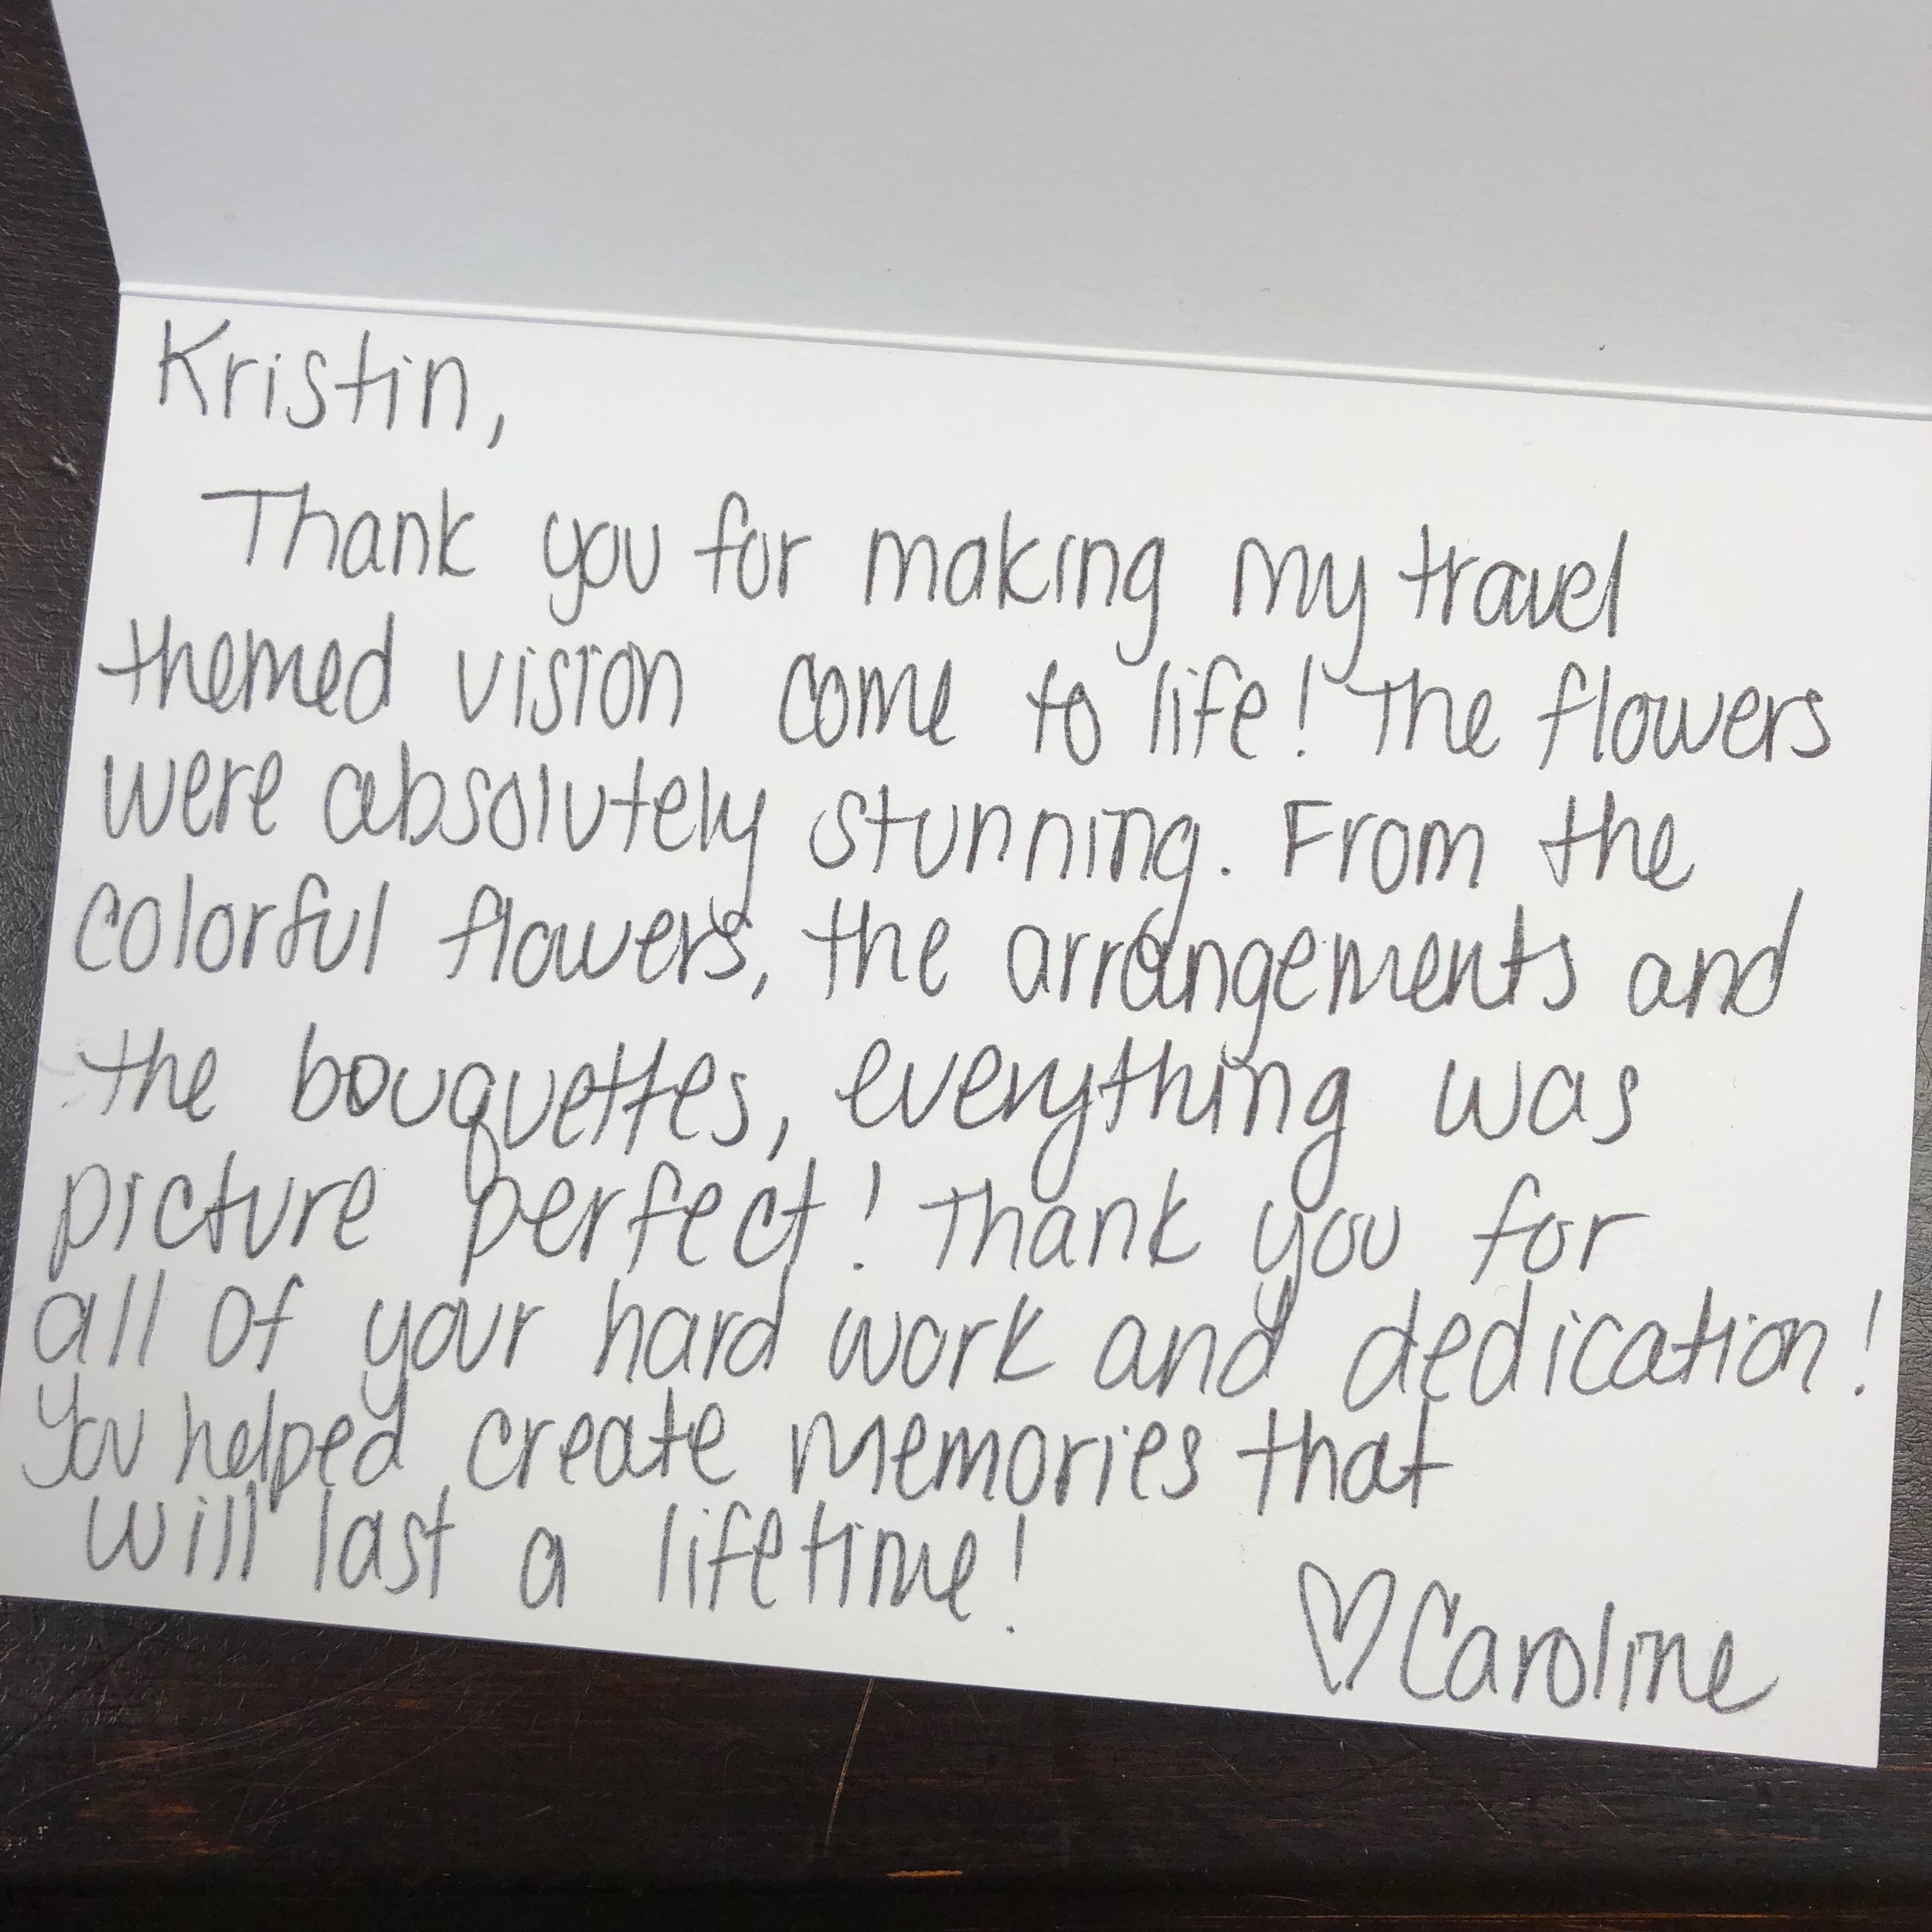 Kristin,
Thank you for making my travel
themed vision come to life! The flowers
were absolutely stunning. From the
colorful flowers, the arrangements and
the bouquettes, everything was
picture perfect! Thank you for
all of your hard work and dedication!
You helped create memories that
will last a lifetime!
♡Caroline